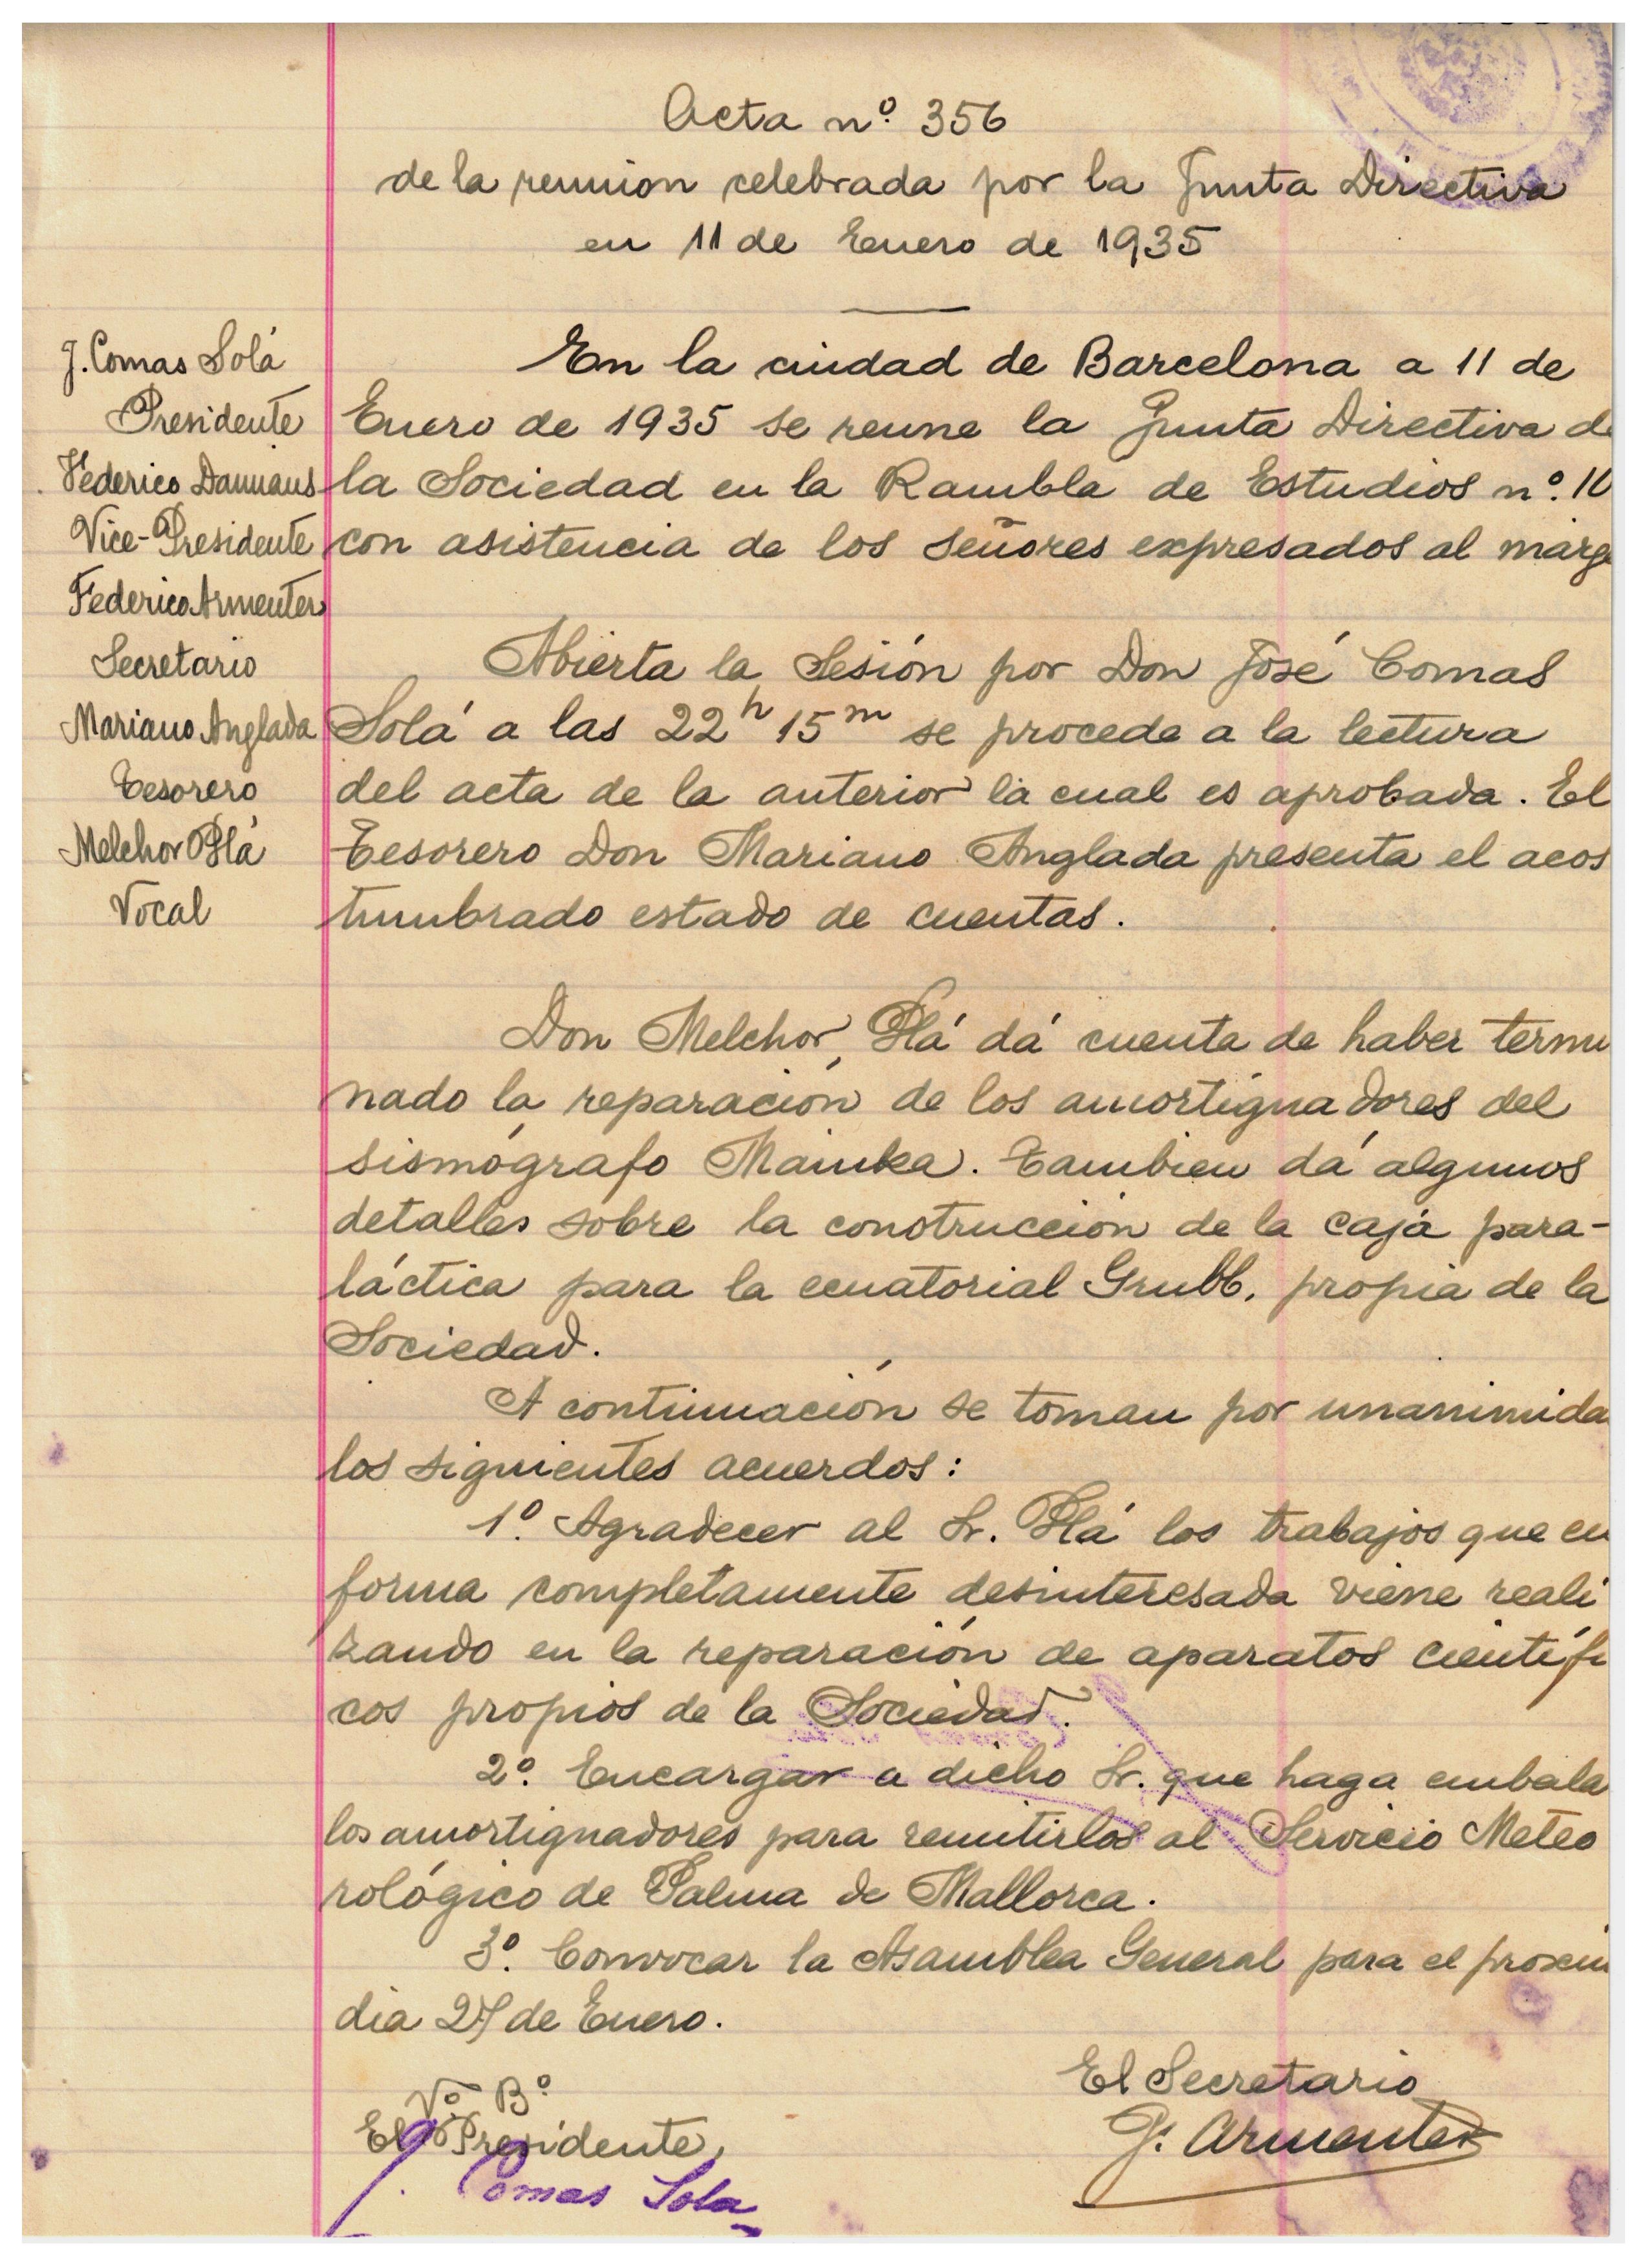 Acta nº. 356
de la reunion celebrada por la Junta Directiva
en 11 de Enero de 1935
J. Comas Solá
Presidente
Federico Damians
Vice-Presidente
Federico Armenter
Secretario
Mariano Anglada
Tesorero
Melchor Plá
Vocal
En la ciudad de Barcelona a 11 de
Enero de 1935 se reune la Junta Directiva de
la Sociedad en la Rambla de Estudios nº. 10
con asistencia de los señores expresados al marge
Abierta la Sesión por Don José Comas
Solá a las 22h 15m se procede a la lectura
del acta de la anterior la cual es aprobada. El
Tesorero Don Mariano Anglada presenta el acos
tumbrado estado de cuentas.
Don Melchor Plá dá cuenta de haber termi
nado la reparación de los amortiguadores del
sismógrafo Mainka. Tambien dá algunos
detalles sobre la construcción de la caja para-
láctica para la ecuatorial Grubb, propia de la
Sociedad.
A continuación se toman por unanimida
los siguientes acuerdos:
1º. Agradecer al Sr. Plá los trabajos que en
forma completamente desinteresada viene reali
zando en la reparación de aparatos científi
cos propios de la Sociedad.
2º. Encargar a dicho Sr. que haga embala
los amortiguadores para remitirlos al Servicio Meteo
rológico de Palma de Mallorca.
3º. Convocar la Asamblea General para el proxim
dia 27 de Enero.
Vº Bº
El Presidente,
J. Comas Sola
El Secretario
F. Armenter